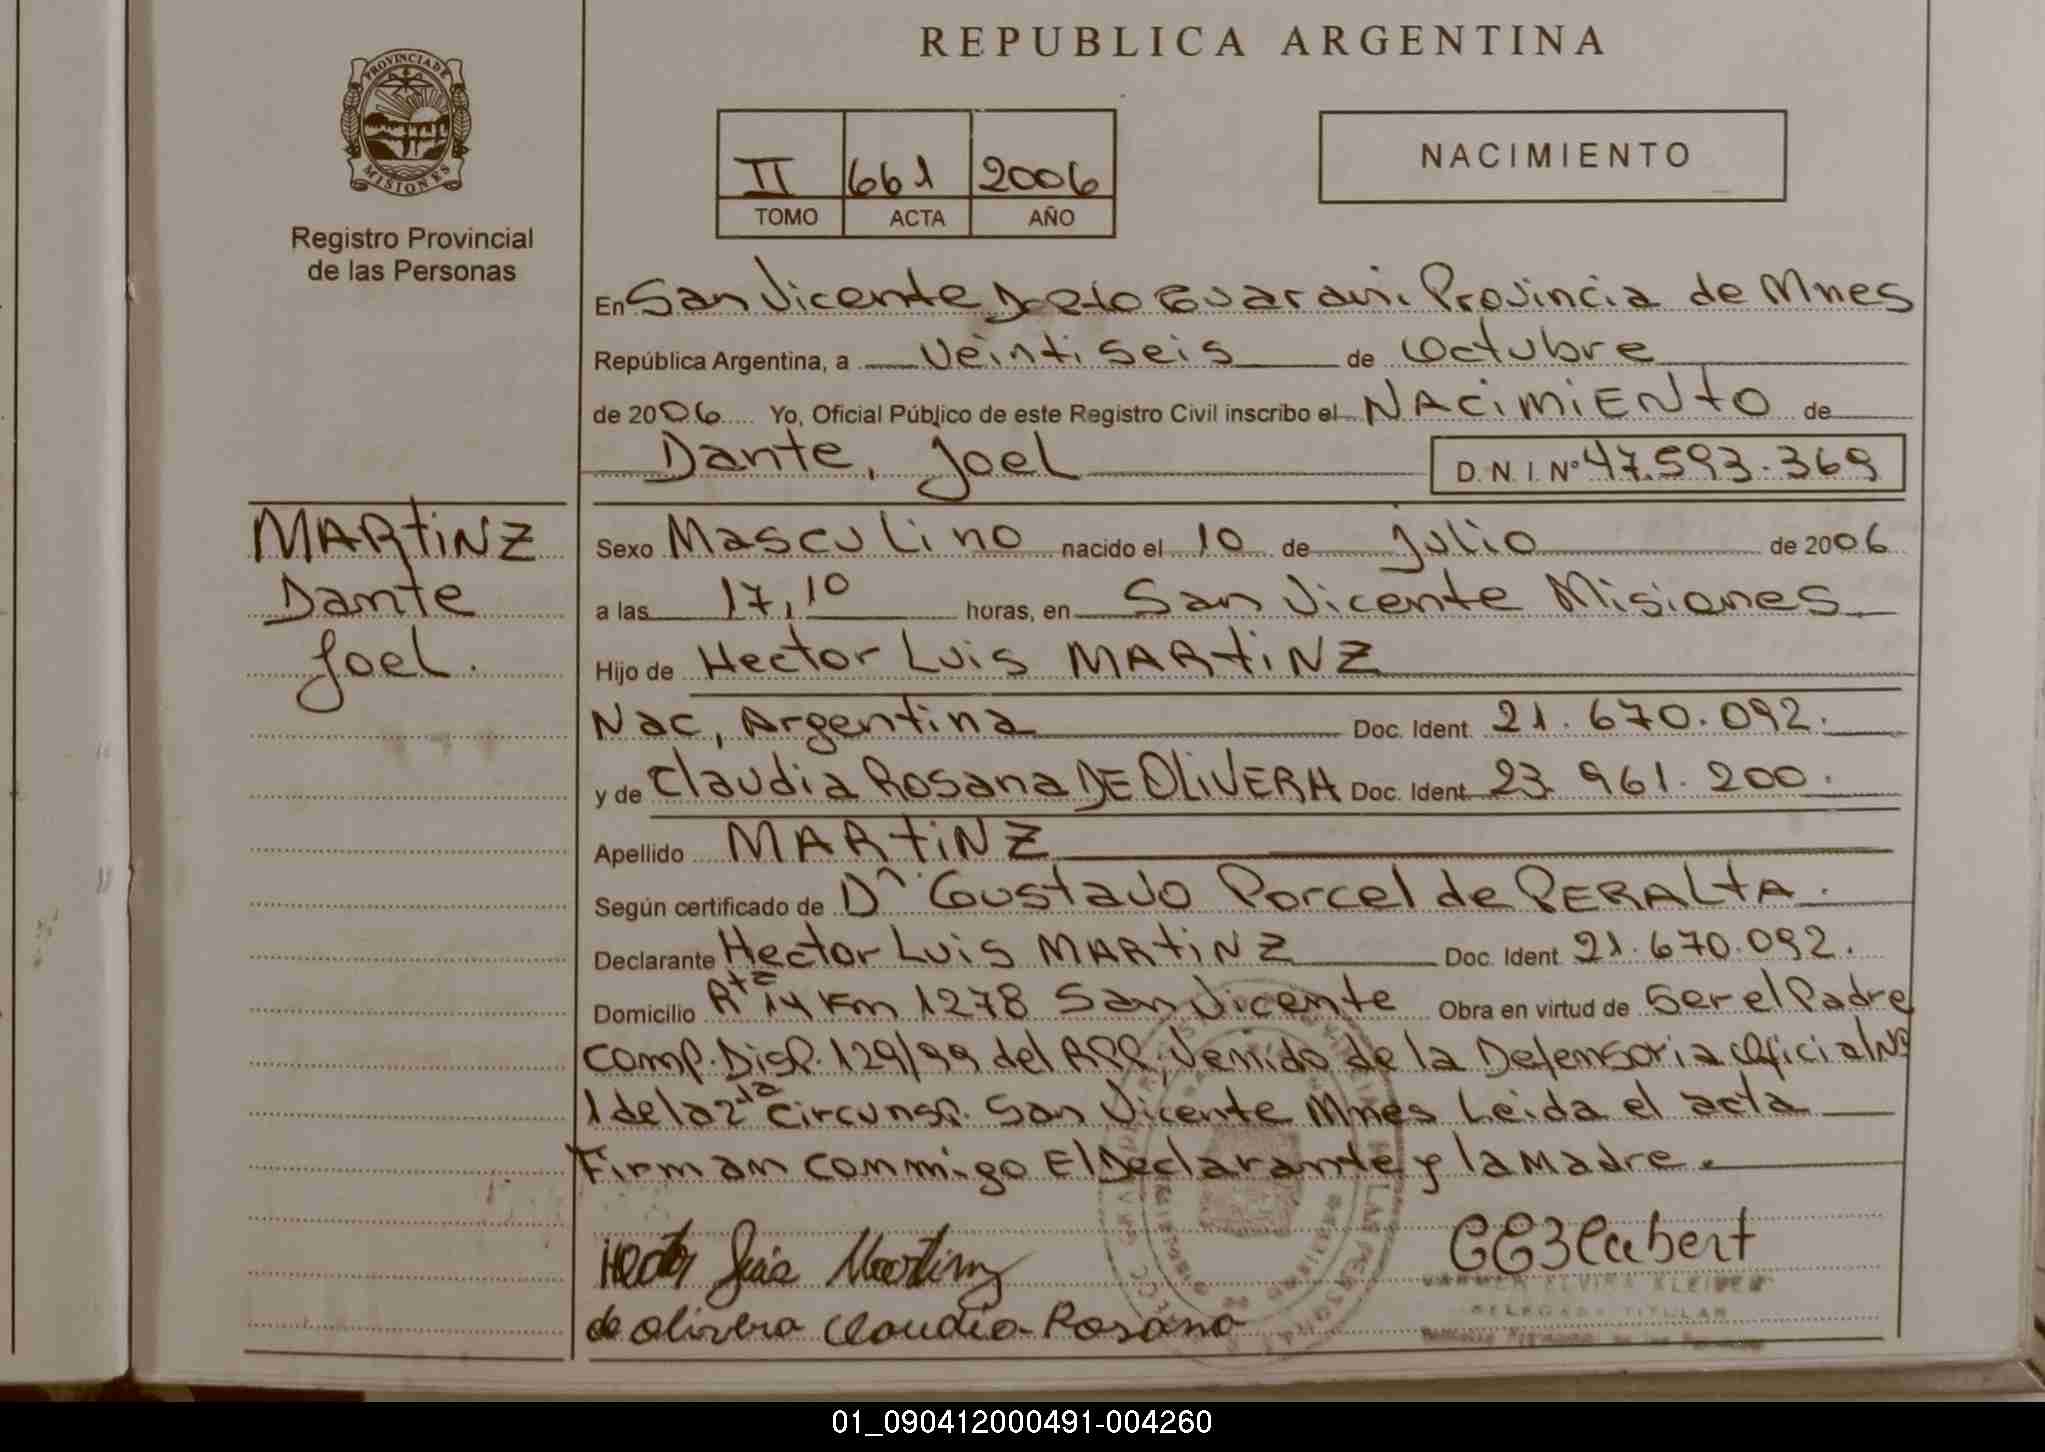 REPUBLICA ARGENTINA
PROVINCIA DE
MISIONES
Registro Provincial
de las Personas
II 661 2006
TOMO ACTA AÑO
NACIMIENTO
En San Vicente Dpto Guarani. Provincia de Mnes
República Argentina, a veintiseis de Octubre
de 2006 Yo, Oficial Público de este Registro Civil inscribo el NACIMIENTO de
Dante, Joel D.N.I. Nº 47.593.369
MARTINZ
Dante
Joel.
Sexo Masculino nacido el 10 de julio de 2006
a las 17,10 horas, en San Vicente Misiones
Hijo de Hector Luis MARTINZ
Nac, Argentina Doc. Ident. 21.670.092.
y de Claudia Rosana DE OLIVERA Doc. Ident. 23.961.200.
Apellido MARTINZ
Según certificado de Dr Gustavo Porcel de PERALTA.
Declarante Hector Luis MARTINZ Doc. Ident. 21.670.092.
Domicilio Rta 14 Km 1278 San Vicente Obra en virtud de ser el Padre
Comp. Disp. 129/99 del RPP, Venido de la Defensoria Oficial Nº
1 de la 2da Circunsp. San Vicente Mnes Leida el acta
Firman conmigo El Declarante y la Madre.
Hector Luis Martinz
de olivera Claudia Rosana
DELEGADA TITULAR
01_090412000491-004260